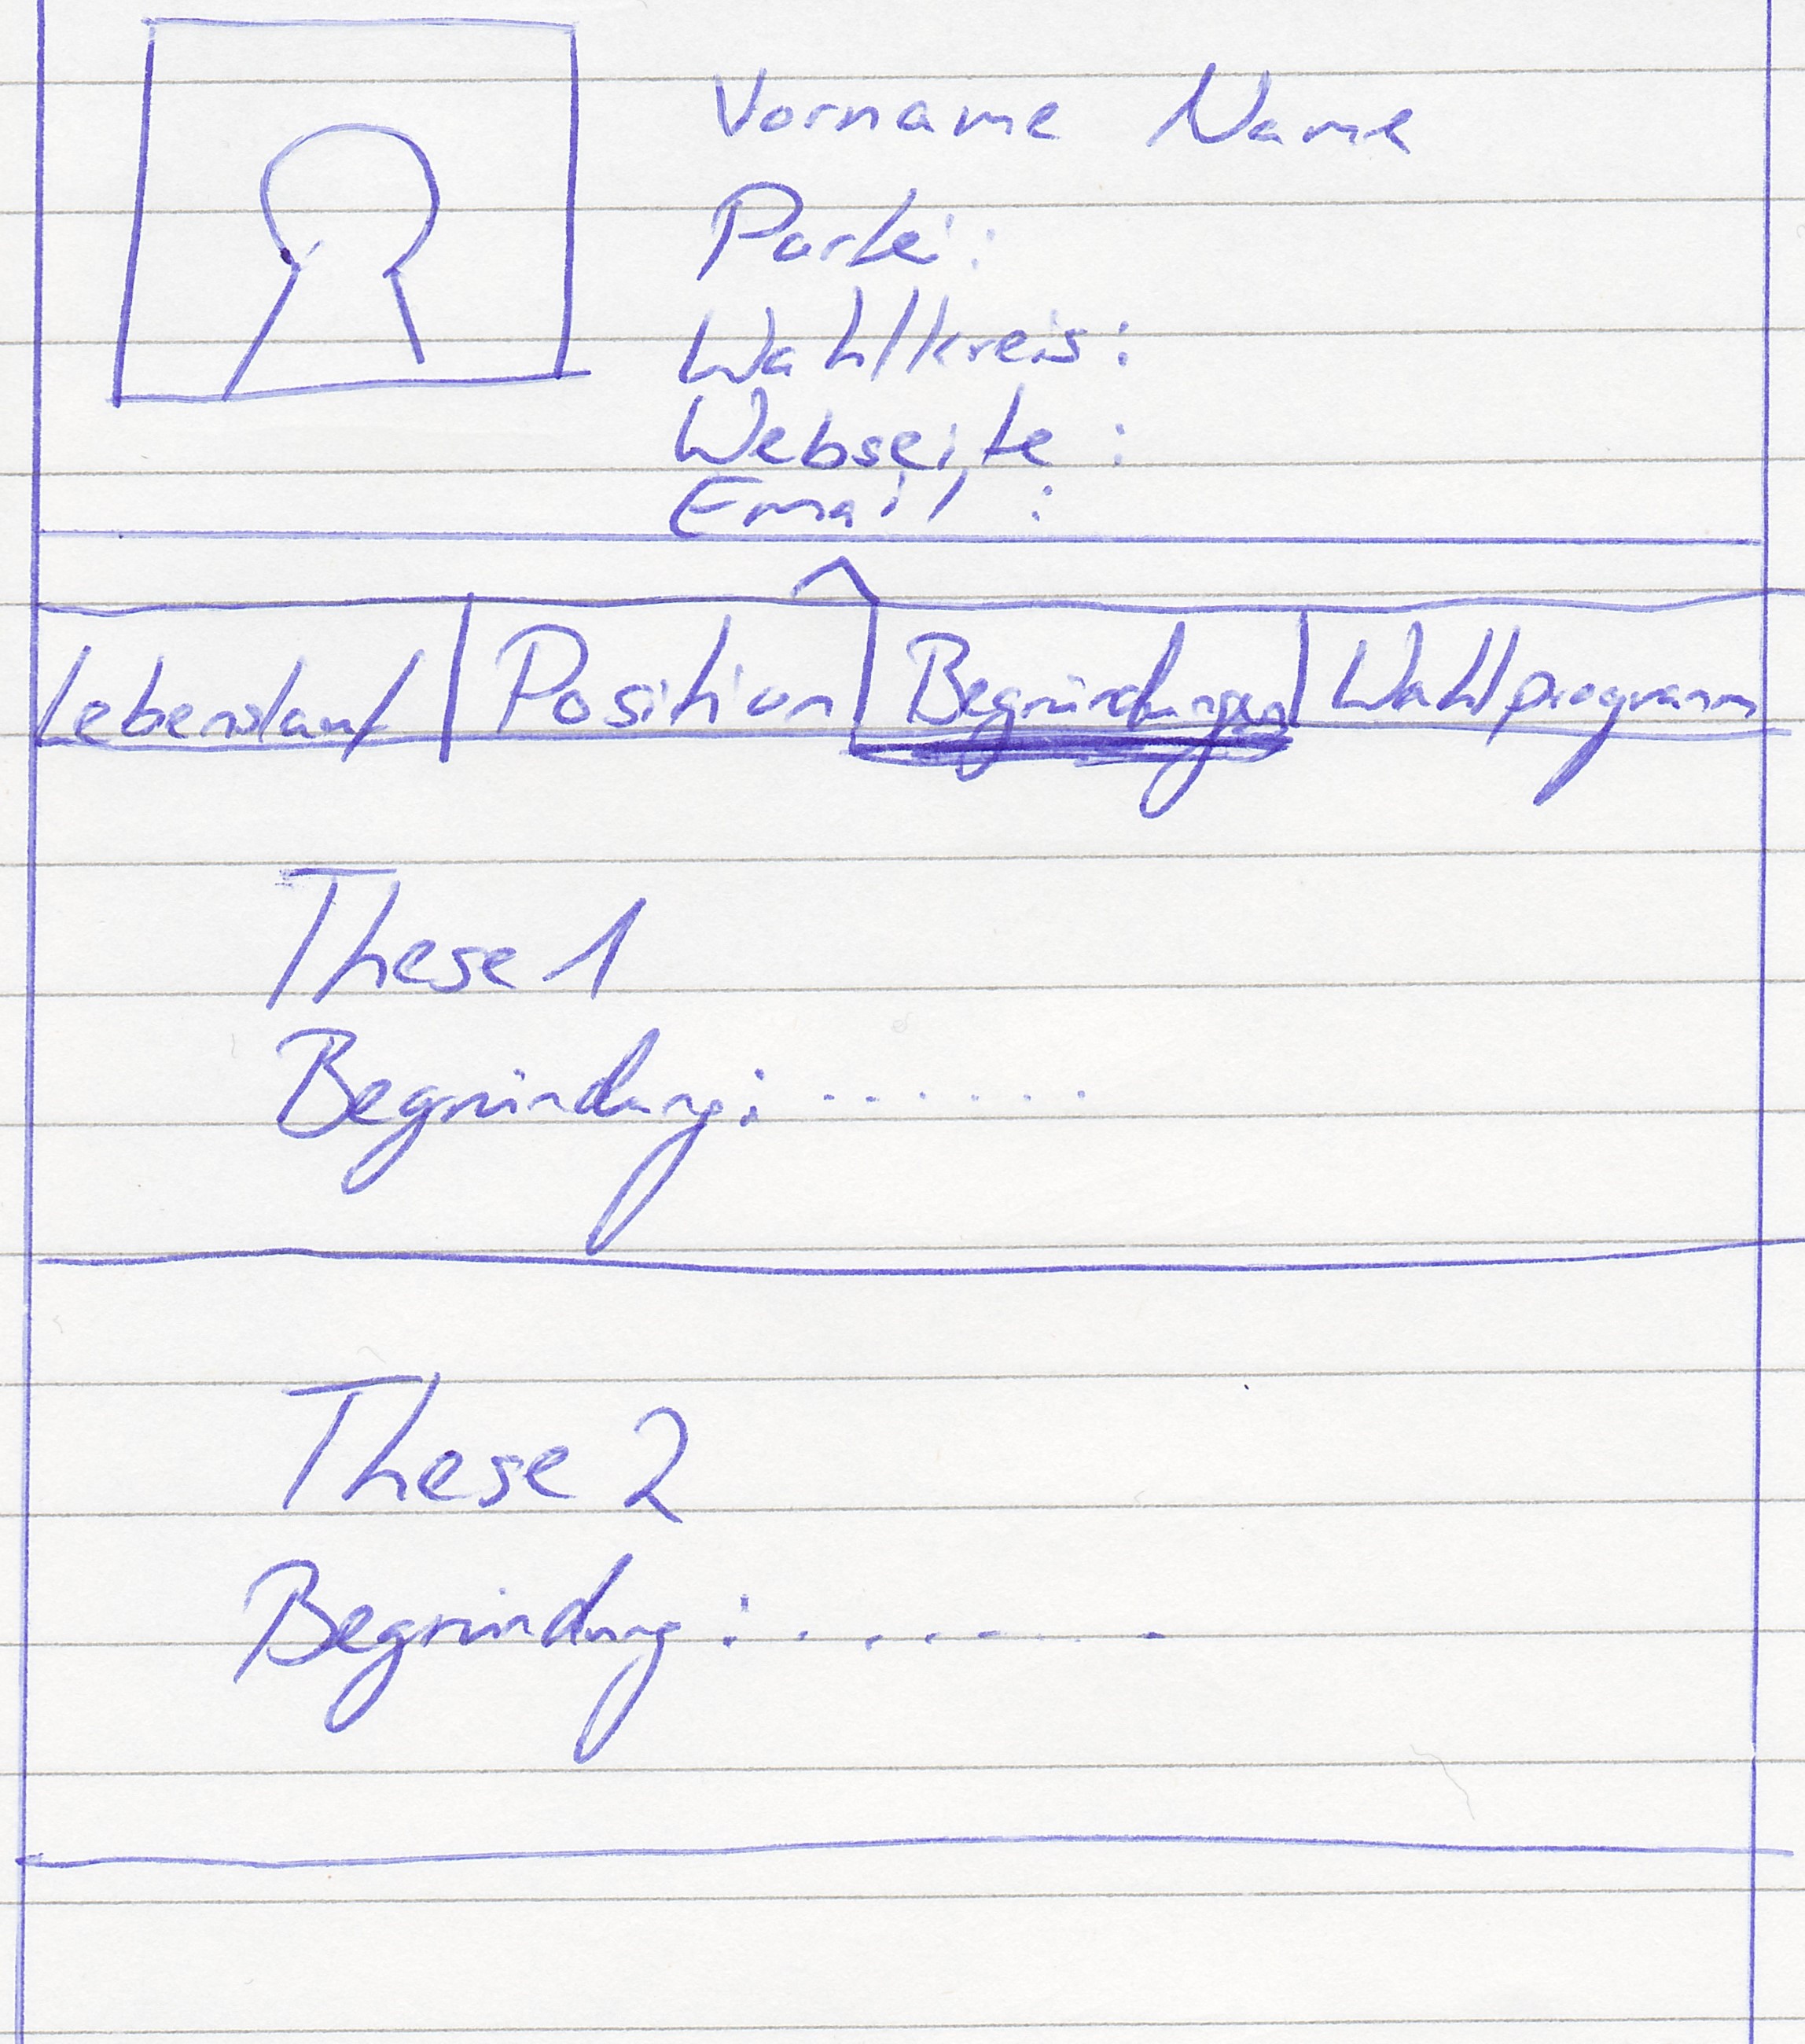 Vorname Name
Partei:
Wahlkreis:
Webseite:
Email:
Lebenslauf Position Begründungen Wahlprogramm
These 1
Begründung: .......
These 2
Begründung: .......